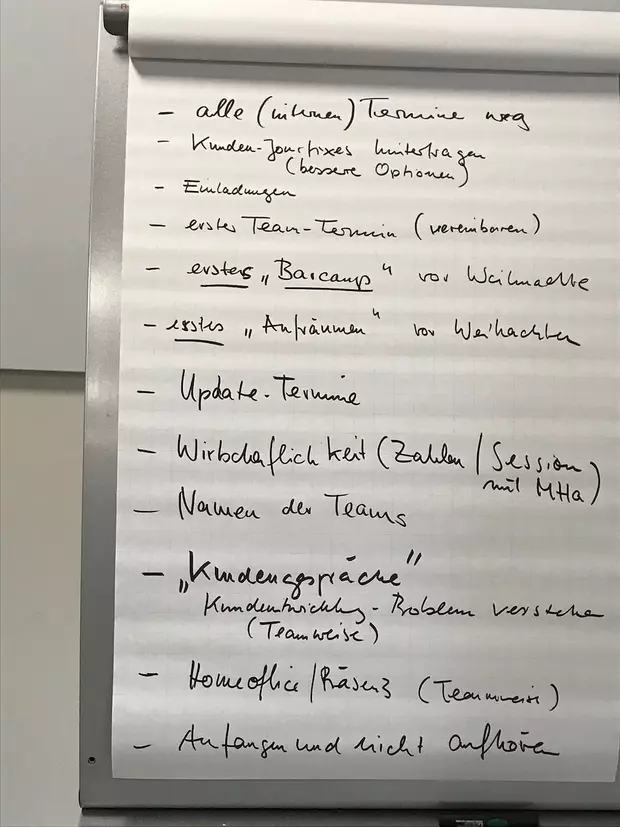 - alle (internen) Termine weg
- Kunden-Jourfixes hinterfragen
(bessere Optionen)
- Einladungen
- erster Team-Termin (vereinbaren)
- erstes „Barcamp“ vor Weihnachten
- erstes „Aufräumen“ vor Weihachten
- Update-Termine
- Wirtschaflichkeit (Zahlen / Session
mit MHa)
- Namen der Teams
- „Kundengespräche“
Kundentwicklung - Problem verstehen
(Teamweise)
- Homeoffice/Präsenz (Teamweise)
- Anfangen und nicht aufhören